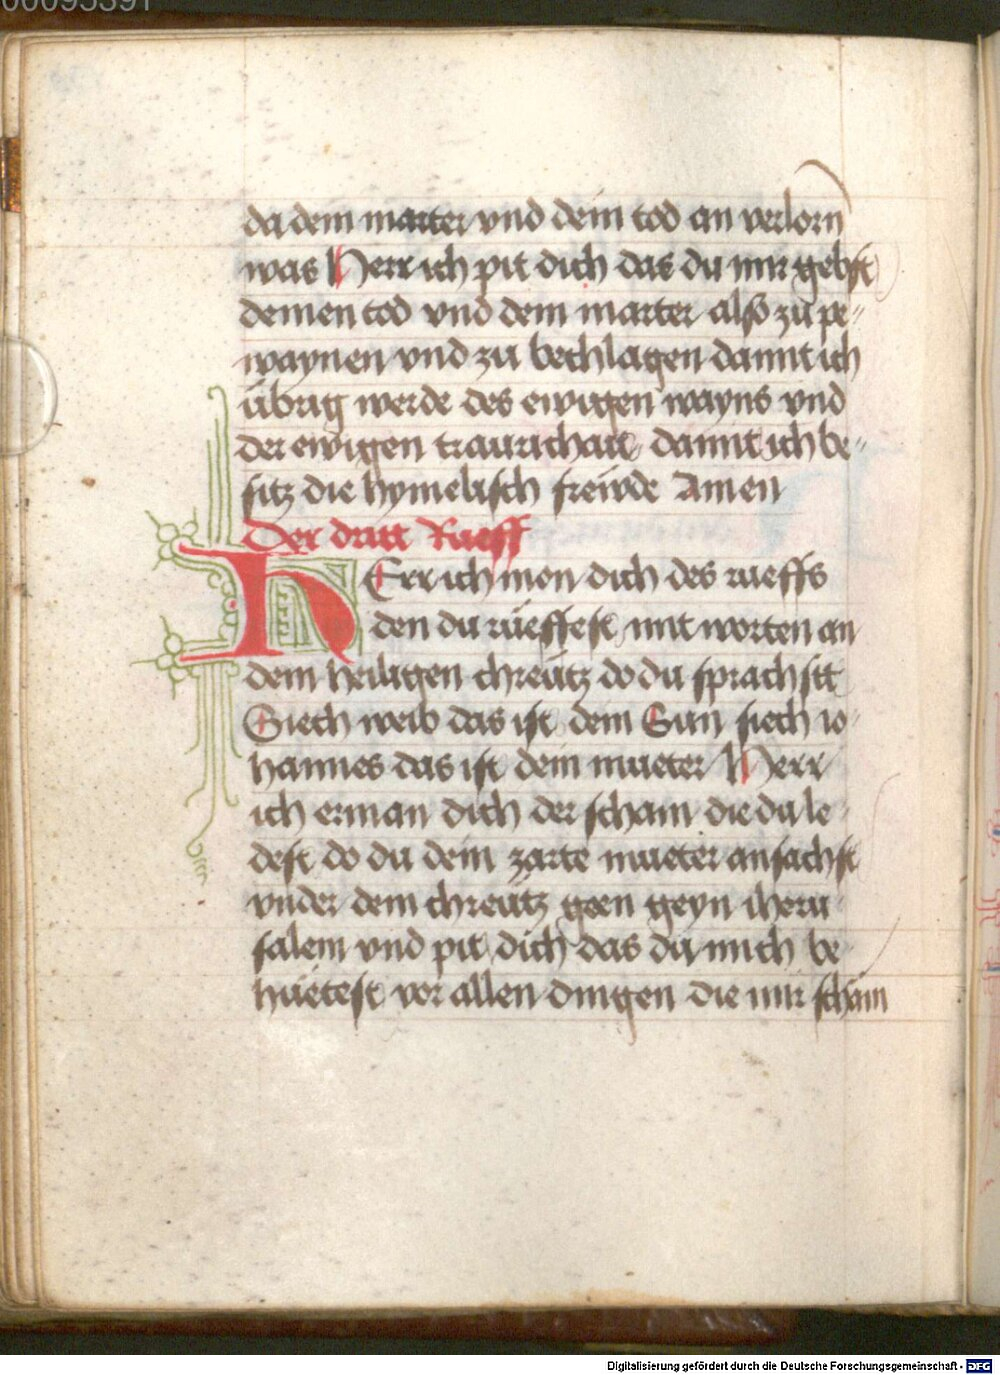 00095391
da dein marter vnd dein tod an verlorn
was Herr ich pit dich das du mir gebst
deinen tod vnd dein marter also zu pe„
waynen vnd zu bechlagen damit ich
übrig werde des ewigen wayns vnd
der ewigen traurichait damit ich be„
sitz die hymelisch freẅde Amen
Der dritt Rueff
HErr ich mon dich des rueffs
den du rüeffest mit worten an
dem heiligen chreütz do du sprachstt
Siech weib das ist dein Sun siech io-
hannes das ist dein mueter Herr
ich erman dich der scham die du le-
dest do du dein zarte mueter ansachst
vnder dem chreütz geen geyn iheru-
salem vnd pit dich das du mich be-
hüetest vor allen dingen die mir scham
Digitalisierung gefördert durch die Deutsche Forschungsgemeinschaft - DFG